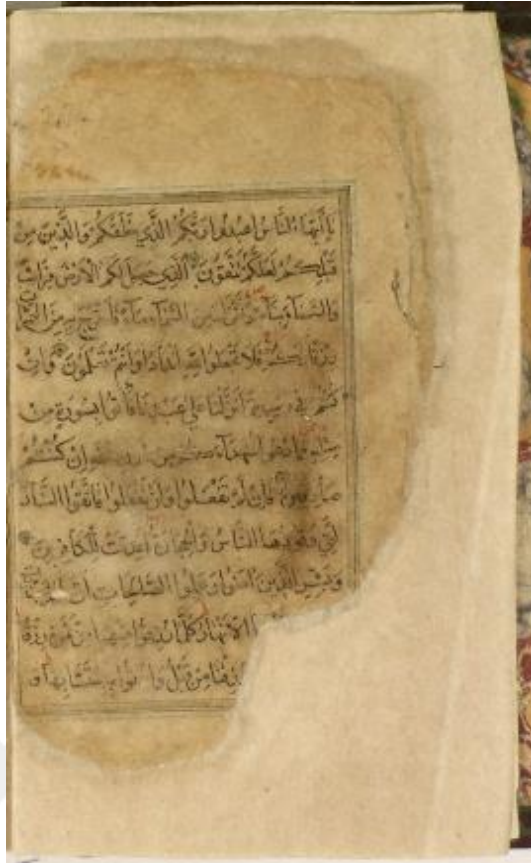 يَا أَيُّهَا النَّاسُ اعْبُدُوا رَبَّكُمُ الَّذِي خَلَقَكُمْ وَالَّذِينَ مِنْ
قَبْلِكُمْ لَعَلَّكُمْ تَتَّقُونَ الَّذِي جَعَلَ لَكُمُ الْأَرْضَ فِرَاشًا
وَالسَّمَاءَ بِنَاءً وَأَنْزَلَ مِنَ السَّمَاءِ مَاءً فَأَخْرَجَ بِهِ مِنَ الثَّمَرَاتِ
رِزْقًا لَكُمْ فَلَا تَجْعَلُوا لِلَّهِ أَنْدَادًا وَأَنْتُمْ تَعْلَمُونَ وَإِنْ
كُنْتُمْ فِي رَيْبٍ مِمَّا نَزَّلْنَا عَلَى عَبْدِنَا فَأْتُوا بِسُورَةٍ مِنْ
مِثْلِهِ وَادْعُوا شُهَدَاءَكُمْ مِنْ دُونِ اللَّهِ إِنْ كُنْتُمْ
صَادِقِينَ فَإِنْ لَمْ تَفْعَلُوا وَلَنْ تَفْعَلُوا فَاتَّقُوا النَّارَ
الَّتِي وَقُودُهَا النَّاسُ وَالْحِجَارَةُ أُعِدَّتْ لِلْكَافِرِينَ
وَبَشِّرِ الَّذِينَ آمَنُوا وَعَمِلُوا الصَّالِحَاتِ أَنَّ لَهُمْ
الْأَنْهَارُ كُلَّمَا رُزِقُوا مِنْهَا مِنْ ثَمَرَةٍ
رُزِقْنَا مِنْ قَبْلُ وَأُتُوا بِهِ مُتَشَابِهًا وَ